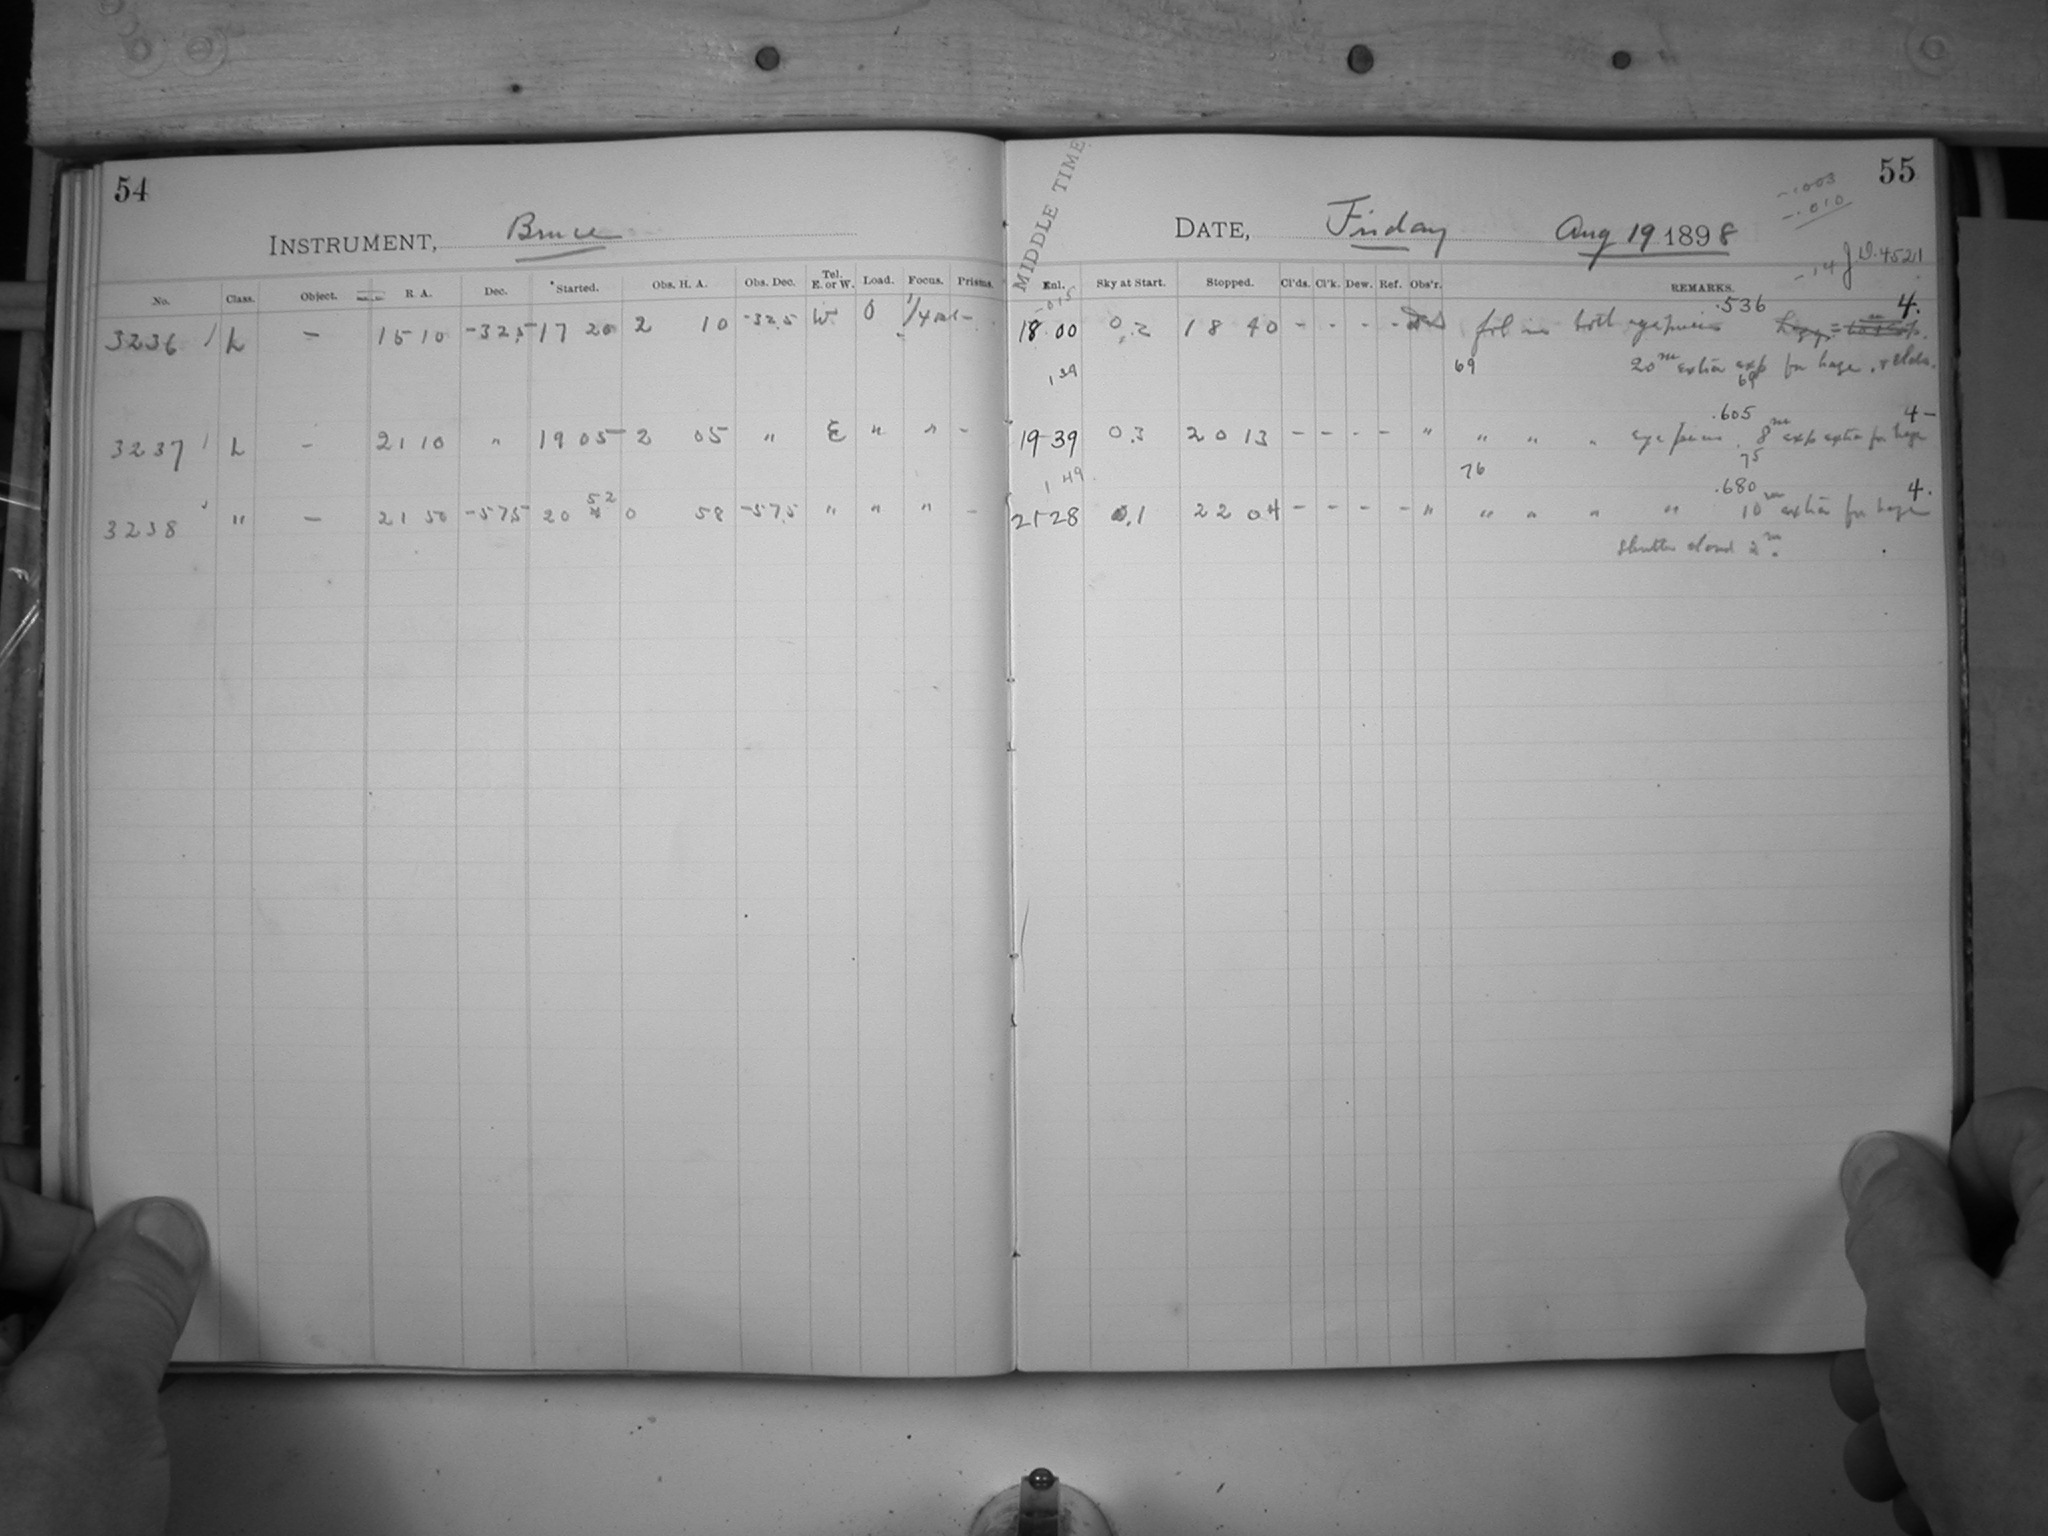 54
INSTRUMENT, Bruce
No. Class. Object. R. A. Dec. Started. Obs. H. A. Obs. Dec. Tel. E. or W. Load. Focus. Prisms.
3236 L — 15 10 -32.5 17 20 2 10 -32.5 W 0 1/4 out -
3237 L — 21 10 " 19 05 2 05 " E " " -
3238 " — 21 50 -57.5 20 52 0 58 -57.5 " " " -
55
-.003
-.010
MIDDLE TIME
DATE, Friday Aug 19 1898
-14 J D. 4521
Enl. Sky at Start. Stopped. Cl'ds. Cl'k. Dew. Ref. Obs'r. REMARKS.
-015 .536 4.
18 00 0.2 18 40 - - - - fol in both eyepieces
1 39 69 20m extra exp for haze & clds.
69
.605 4-
19-39 0.3 20 13 - - - - " " " " eye pieces. 8m exp extra for haze
1 49 76 75
.680 4.
21-28 0.1 22 04 - - - - " " " " " 10m extra for haze
Shutter closed 2m.